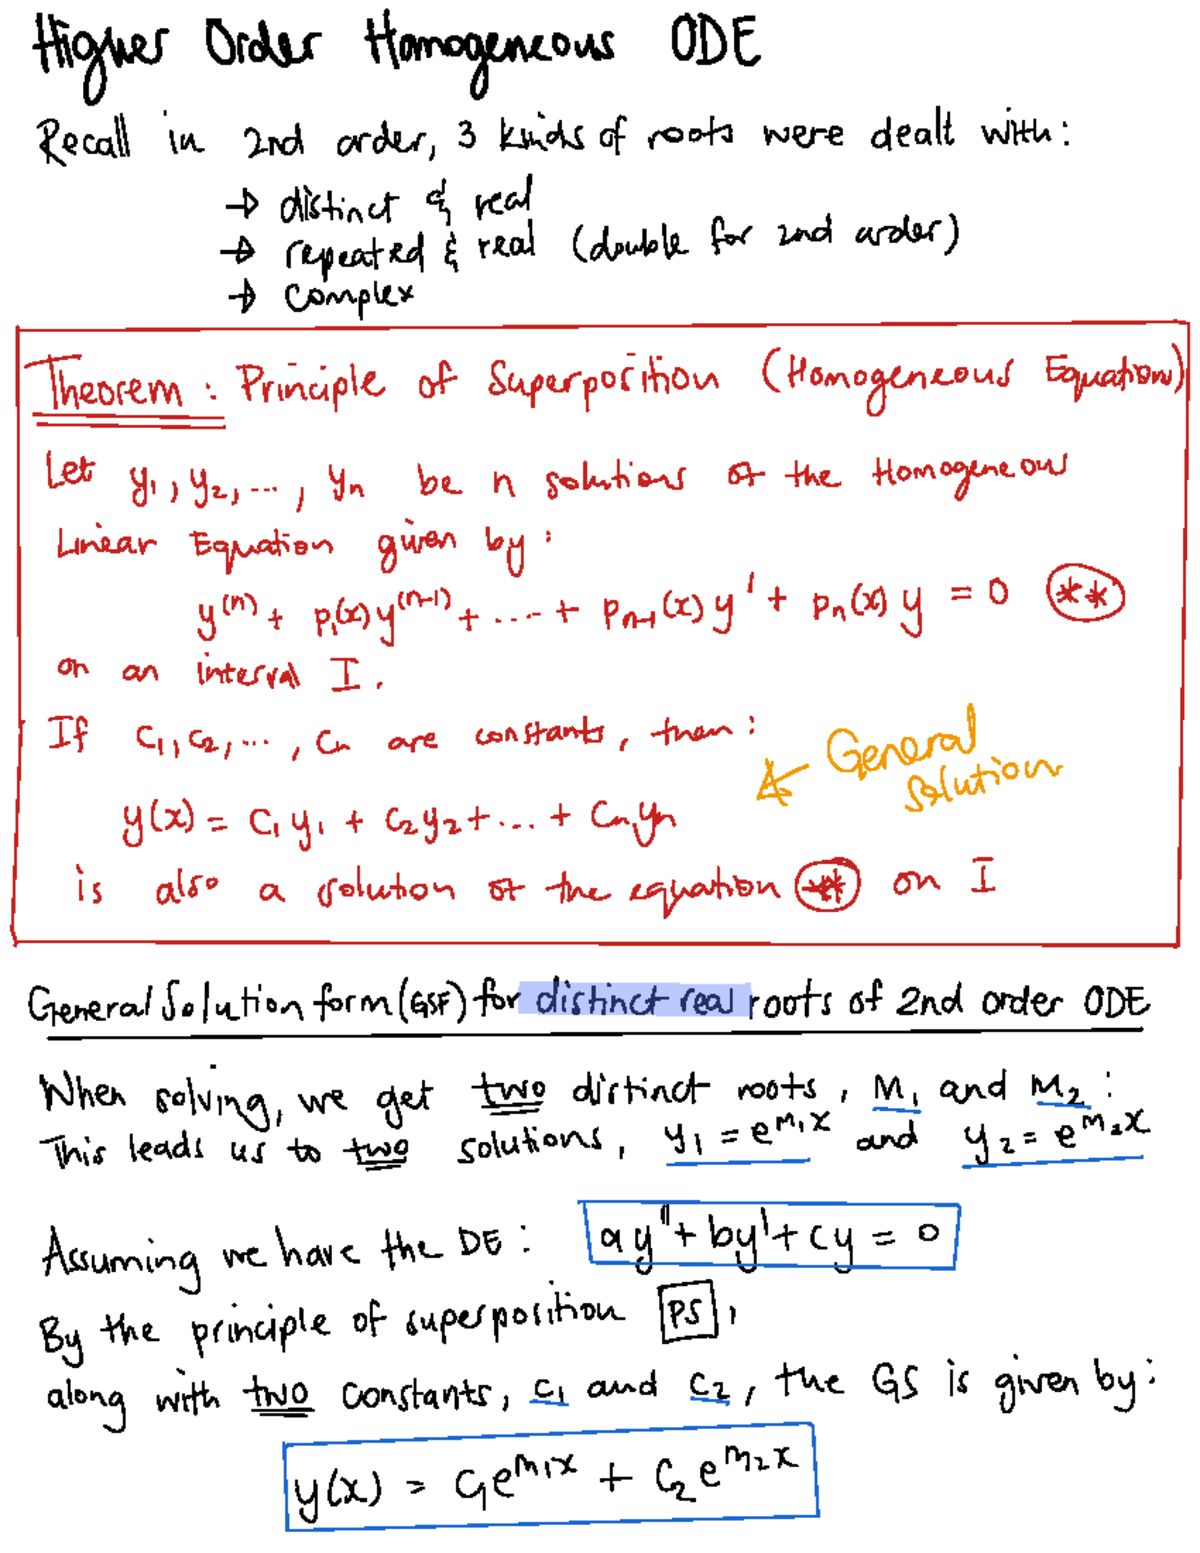 Higher Order Homogeneous ODE
Recall in 2nd order, 3 kinds of roots were dealt with:
→ distinct & real
→ repeated & real (double for 2nd order)
→ complex
Theorem: Principle of Superposition (Homogeneous Equation)
Let y₁, y₂, ..., yn be n solutions of the Homogeneous
Linear Equation given by:
y⁽ⁿ⁾ + p₁(x)y⁽ⁿ⁻¹⁾ + ... + pₙ₋₁(x)y' + pₙ(x)y = 0 (**)
on an interval I.
If c₁, c₂, ..., cn are constants, then:
General
solution
y(x) = c₁y₁ + c₂y₂ + ... + cnyn
is also a solution of the equation (**) on I
General Solution form (GSF) for distinct real roots of 2nd order ODE
When solving, we get two distinct roots, m₁ and m₂:
This leads us to two solutions, y₁ = e^m₁x and y₂ = e^m₂x
Assuming we have the DE: ay" + by' + cy = 0
By the principle of superposition PS,
along with two constants, c₁ and c₂, the GS is given by:
y(x) = c₁e^m₁x + c₂e^m₂x